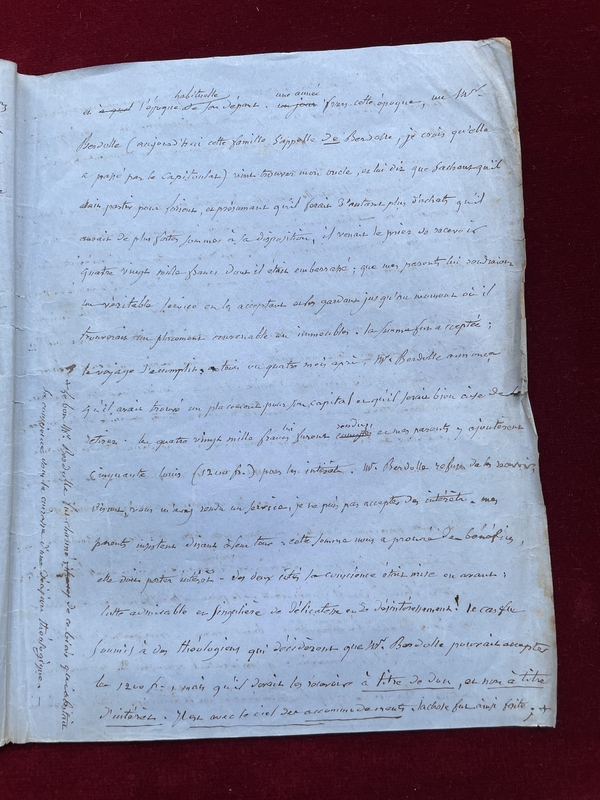 habituelle une année
et à quel l'époque de son départ. un jour frère cette époque, un Mr
Berdolle (aujourd'hui cette famille s'appelle de Berdolle, je crois qu'elle
a passé par le Capitoulat) vint trouver mon oncle, et lui dit que sachant qu'il
était partir pour Lorient, et présumant qu'il ferait d'autant plus d'achats qu'il
aurait de plus fortes sommes à sa disposition, il venait le prier de recevoir
quatre vingt mille francs dont il était embarrassé ; que mes parents lui rendraient
un véritable service en les acceptant et les gardant jusqu'au moment où il
trouverait un placement convenable en immeubles. la somme fut acceptée ;
le voyage s'accomplit, trois ou quatre mois après, Mr. Berdolle annonça
qu'il avait trouvé un placement pour son capital et qu'il serait bien aise de le
retirer. les quatre vingt mille francs furent comptés rendus et mes parents y ajoutèrent
cinquante louis (1200 fr.) pour les intérêts. Mr. Berdolle refusa de les recevoir
disant, vous m'avez rendu un service, je ne puis pas accepter des intérêts. mes
parents insistent disant à leur tour : cette somme nous a procuré des bénéfices,
elle doit porter intérêt - des deux côtés la conscience était mise en avant :
lutte admirable et singulière de délicatesse et de désintéressement ! le cas fut
soumis à des théologiens qui décidèrent que Mr. Berdolle pouvait accepter
les 1200 fr., mais qu'il devait les recevoir à titre de don, et non à titre
d'intérêt. Il est avec le ciel des accommodements. la chose fut ainsi faite ; +
+ le bon Mr. Berdolle fut charmé de ce biais qui satisfit
sa conscience sous le couvert d'une décision théologique. -